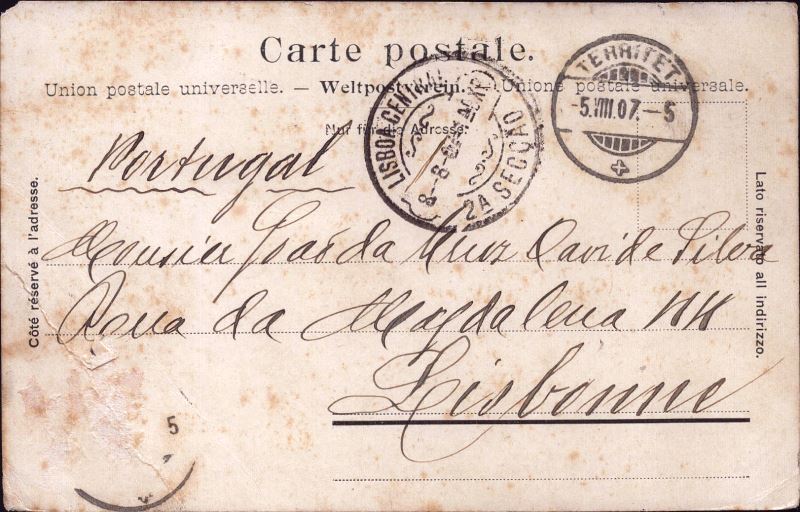 Carte postale.
Union postale universelle. — Weltpostverein. — Unione postale universale.
Nur für die Adresse.
TERRITET
-5.VIII.07.-5
LISBOA CENTRAL
8-8-07
2A SECÇÃO
Portugal
Monsieur João da Cruz David e Silva
Rua da Magdalena 188
Lisbonne
Côté réservé à l'adresse.
Lato riservato all indirizzo.
5